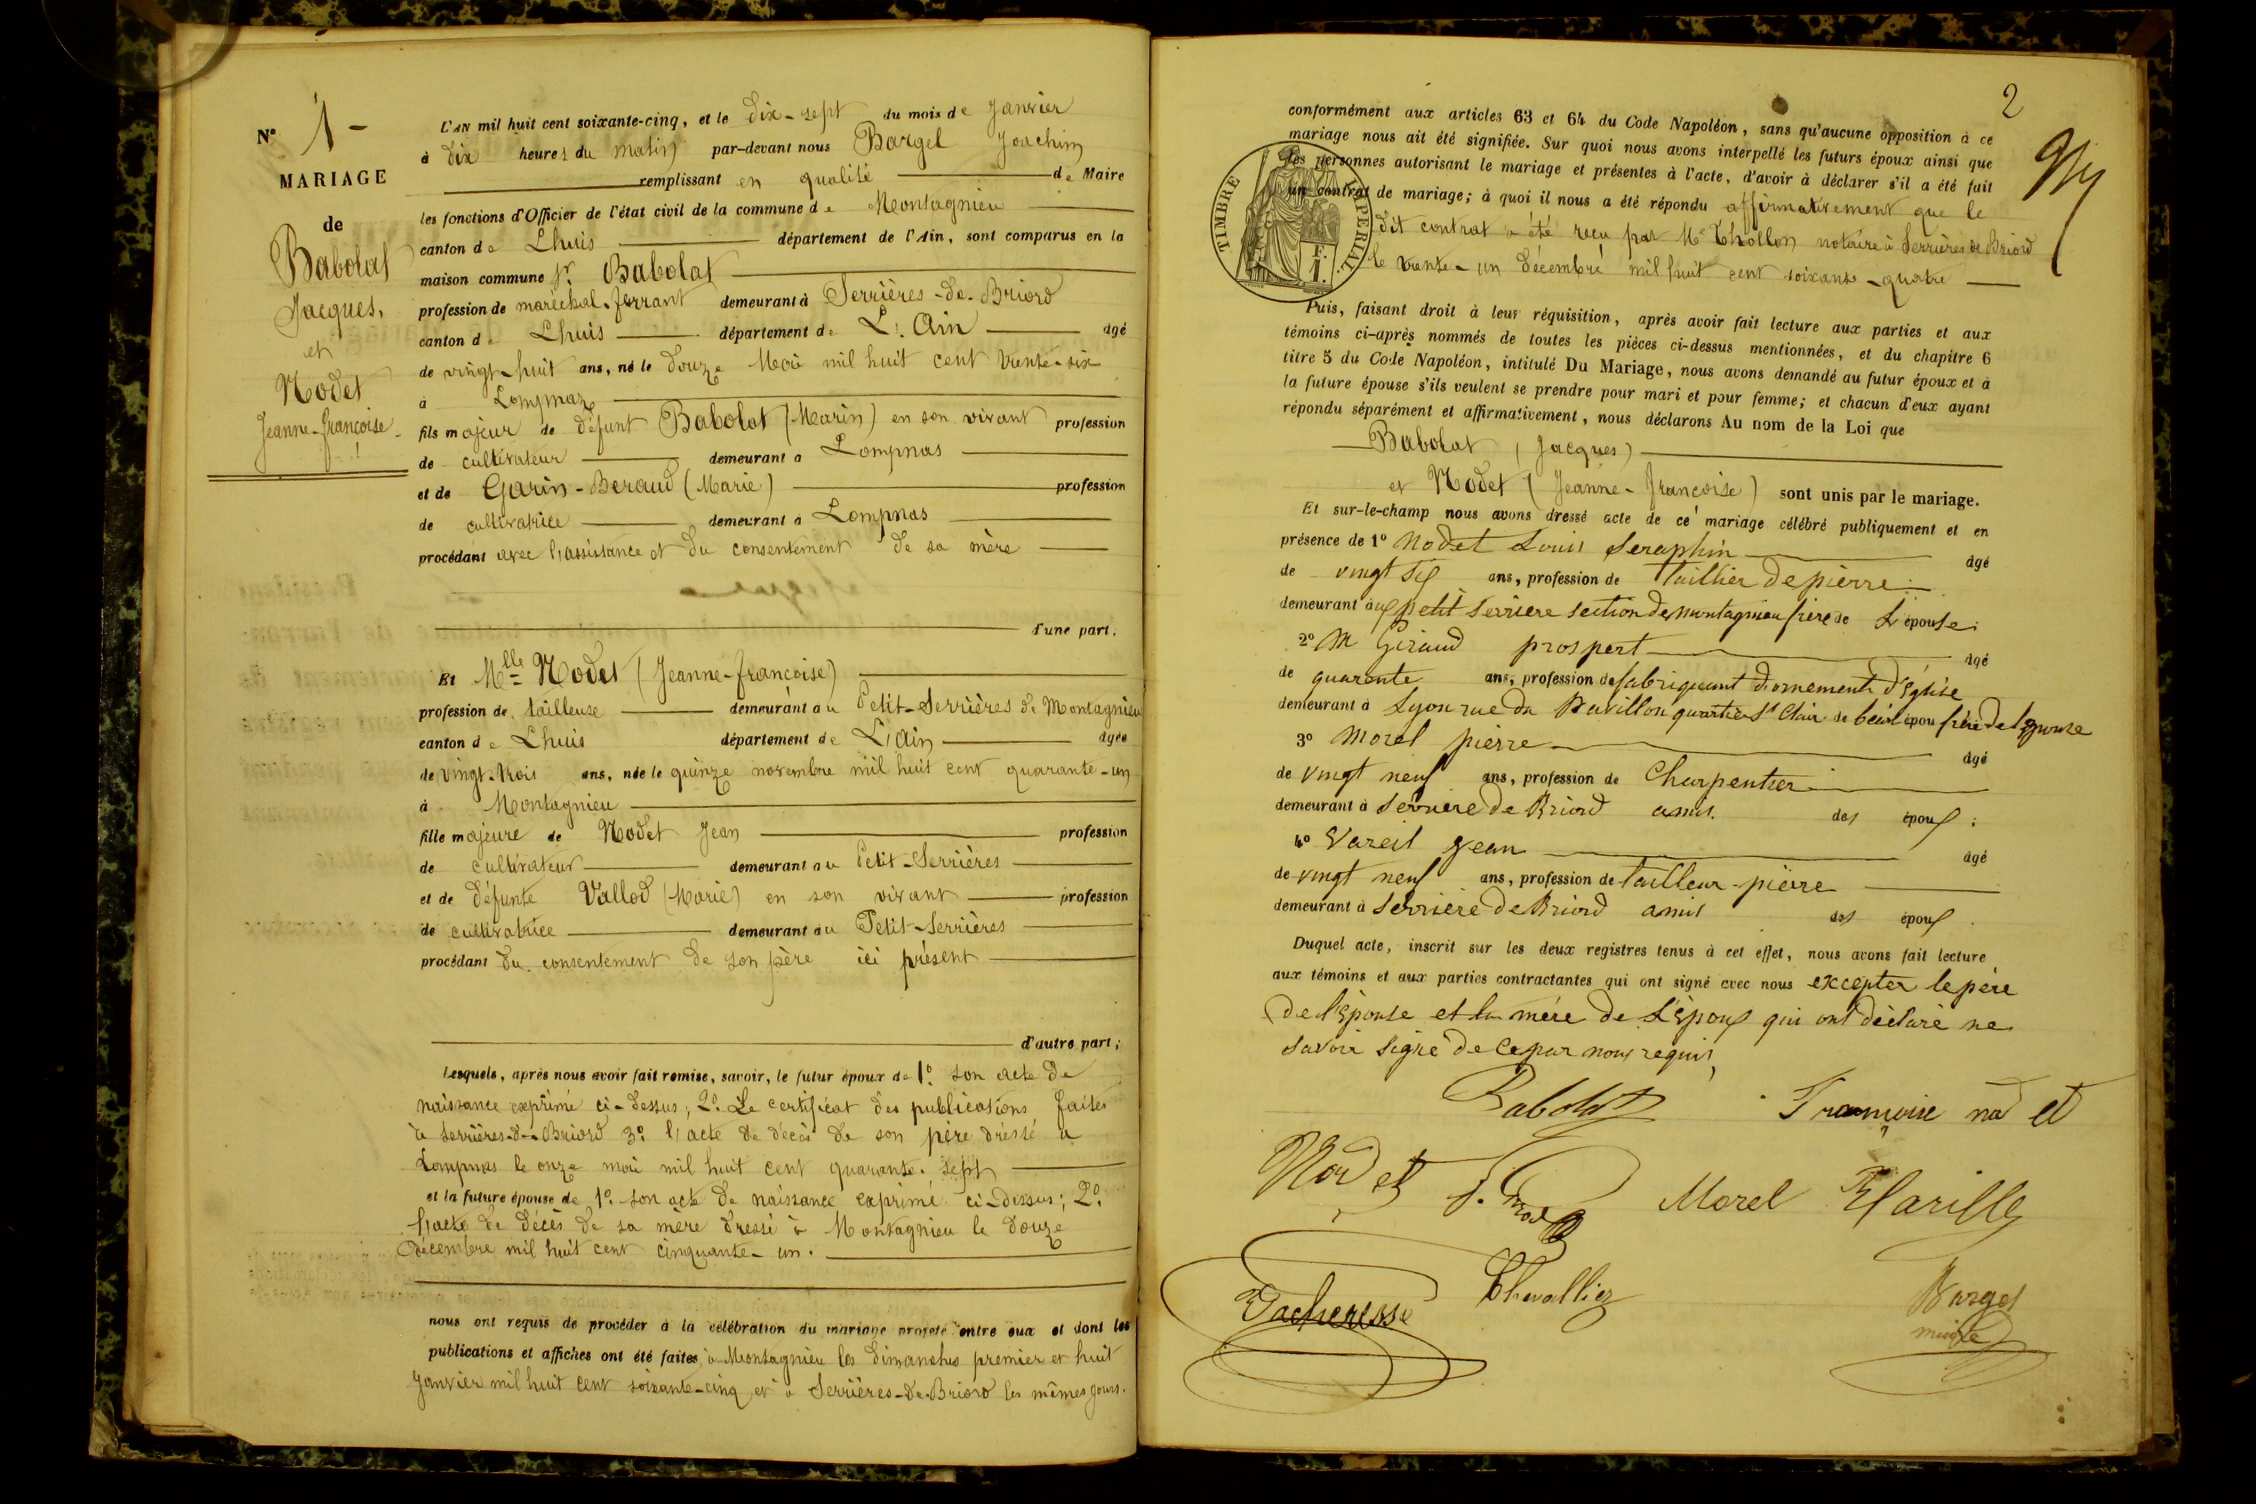 N° 1 -
MARIAGE
de
Babolat
Jacques,
et
Nodet
Jeanne-françoise.
L'AN mil huit cent soixante-cinq, et le dix-sept du mois de Janvier
à dix heures du matin par-devant nous Bargel Joachim
remplissant en qualité de Maire
les fonctions d'Officier de l'état civil de la commune de Montagnieu
canton de Lhuis département de l'Ain, sont comparus en la
maison commune Sr. Babolat
profession de maréchal-ferrant demeurant à Serrières-de-Briord
canton de Lhuis département de L'Ain âgé
de vingt-huit ans, né le douze Mai mil huit cent trente-six
à Lompnaz
fils majeur de défunt Babolat (Marin) en son vivant profession
de cultivateur demeurant à Lompnas
et de Garin-Beraud (Marie) profession
de cultivatrice demeurant à Lompnas
procédant avec l'assistance et du consentement de sa mère
d'une part.
Et Mlle Nodet (Jeanne-françoise)
profession de tailleuse demeurant au Petit-Serrières de Montagnieu
canton de Lhuis département de L'Ain âgée
de vingt-trois ans, née le quinze novembre mil huit cent quarante-un
à Montagnieu
fille majeure de Nodet Jean profession
de cultivateur demeurant au Petit-Serrières
et de défunte Vallod (Marie) en son vivant profession
de cultivatrice demeurant au Petit-Serrières
procédant du consentement de son père ici présent
d'autre part;
Lesquels, après nous avoir fait remise, savoir, le futur époux de 1° son acte de
naissance exprimé ci-dessus, 2° Le certificat des publications faites
à Serrières-de-Briord 3° l'acte de décès de son père dressé à
Lompnas le onze mai mil huit cent quarante-sept
et la future épouse de 1° son acte de naissance exprimé ci-dessus; 2°
l'acte de décès de sa mère dressé à Montagnieu le douze
décembre mil huit cent cinquante-un.
nous ont requis de procéder à la célébration du mariage projeté entre eux et dont les
publications et affiches ont été faites à Montagnieu les dimanches premier et huit
Janvier mil huit cent soixante-cinq et à Serrières-de-Briord les mêmes jours.
2
TIMBRE IMPERIAL.
F. 1.
conformément aux articles 63 et 64 du Code Napoléon, sans qu'aucune opposition à ce
mariage nous ait été signifiée. Sur quoi nous avons interpellé les futurs époux ainsi que
les personnes autorisant le mariage et présentes à l'acte, d'avoir à déclarer s'il a été fait
un contrat de mariage; à quoi il nous a été répondu affirmativement que le
dit contrat a été reçu par Me Thollon notaire à Serrières de Briord
le trente-un décembre mil huit cent soixante-quatre
Puis, faisant droit à leur réquisition, après avoir fait lecture aux parties et aux
témoins ci-après nommés de toutes les pièces ci-dessus mentionnées, et du chapitre 6
titre 5 du Code Napoléon, intitulé Du Mariage, nous avons demandé au futur époux et à
la future épouse s'ils veulent se prendre pour mari et pour femme; et chacun d'eux ayant
répondu séparément et affirmativement, nous déclarons Au nom de la Loi que
Babolat (Jacques)
et Nodet (Jeanne-françoise) sont unis par le mariage.
Et sur-le-champ nous avons dressé acte de ce mariage célébré publiquement et en
présence de 1° Nodet Louis Seraphin âgé
de vingt six ans, profession de taillier de pierre
demeurant aux petit Serriere section de montagnieu frère de L'épouse;
2° M Giraud prospert âgé
de quarante ans, profession de fabriquant d'ornements d'Eglise
demeurant à Lyon rue du Pavillon quartier St Clair de beau épou frère de l'Epouse
3° Morel pierre âgé
de vingt neuf ans, profession de Charpentier
demeurant à Serriere de Briord amis. des époux;
4° Vareil Jean âgé
de vingt neuf ans, profession de tailleur-pierre
demeurant à Serriere de Briord amis des époux.
Duquel acte, inscrit sur les deux registres tenus à cet effet, nous avons fait lecture
aux témoins et aux parties contractantes qui ont signé avec nous excepter le père
de l'Epouse et la mére de L'Epoux qui ont déclaré ne
savoir signé de ce par nous requis,
Babolat Françoise nod et
Nodet Morel
Vacheresse Chevallier Bargel